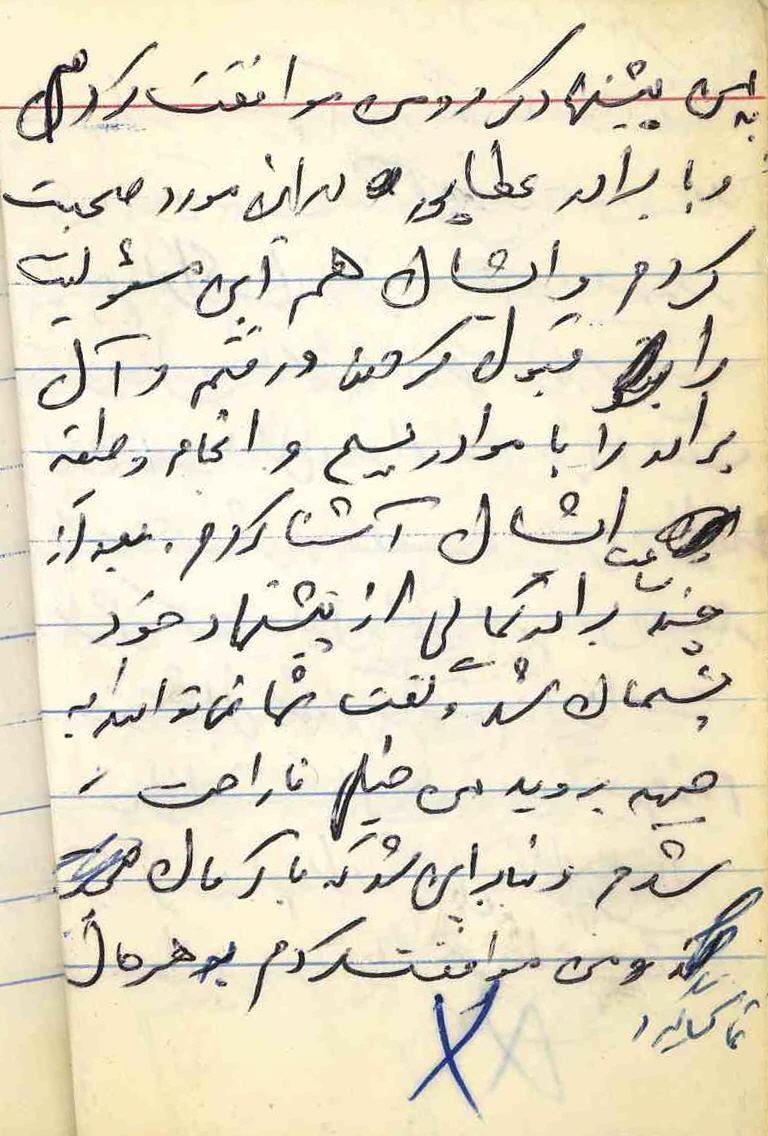 به من پیشنهاد کرد و من موافقت کردم
و با برادر عطایی در این مورد صحبت
کردم و ایشان هم این مسئولیت
را قبول کردند و رفتم و آن
برادر را با موادر نسیم و انجام وظیفه
ایشان آشنا کردم. بعد از
چند ساعت برادر کمالی از پیشنهاد خود
پشیمان شد و گفت شما نمی‌توانید به
جبهه بروید من خیلی ناراحت
شدم و بنا بر این شد که با کمال
و من موافقت کردم به هر حال